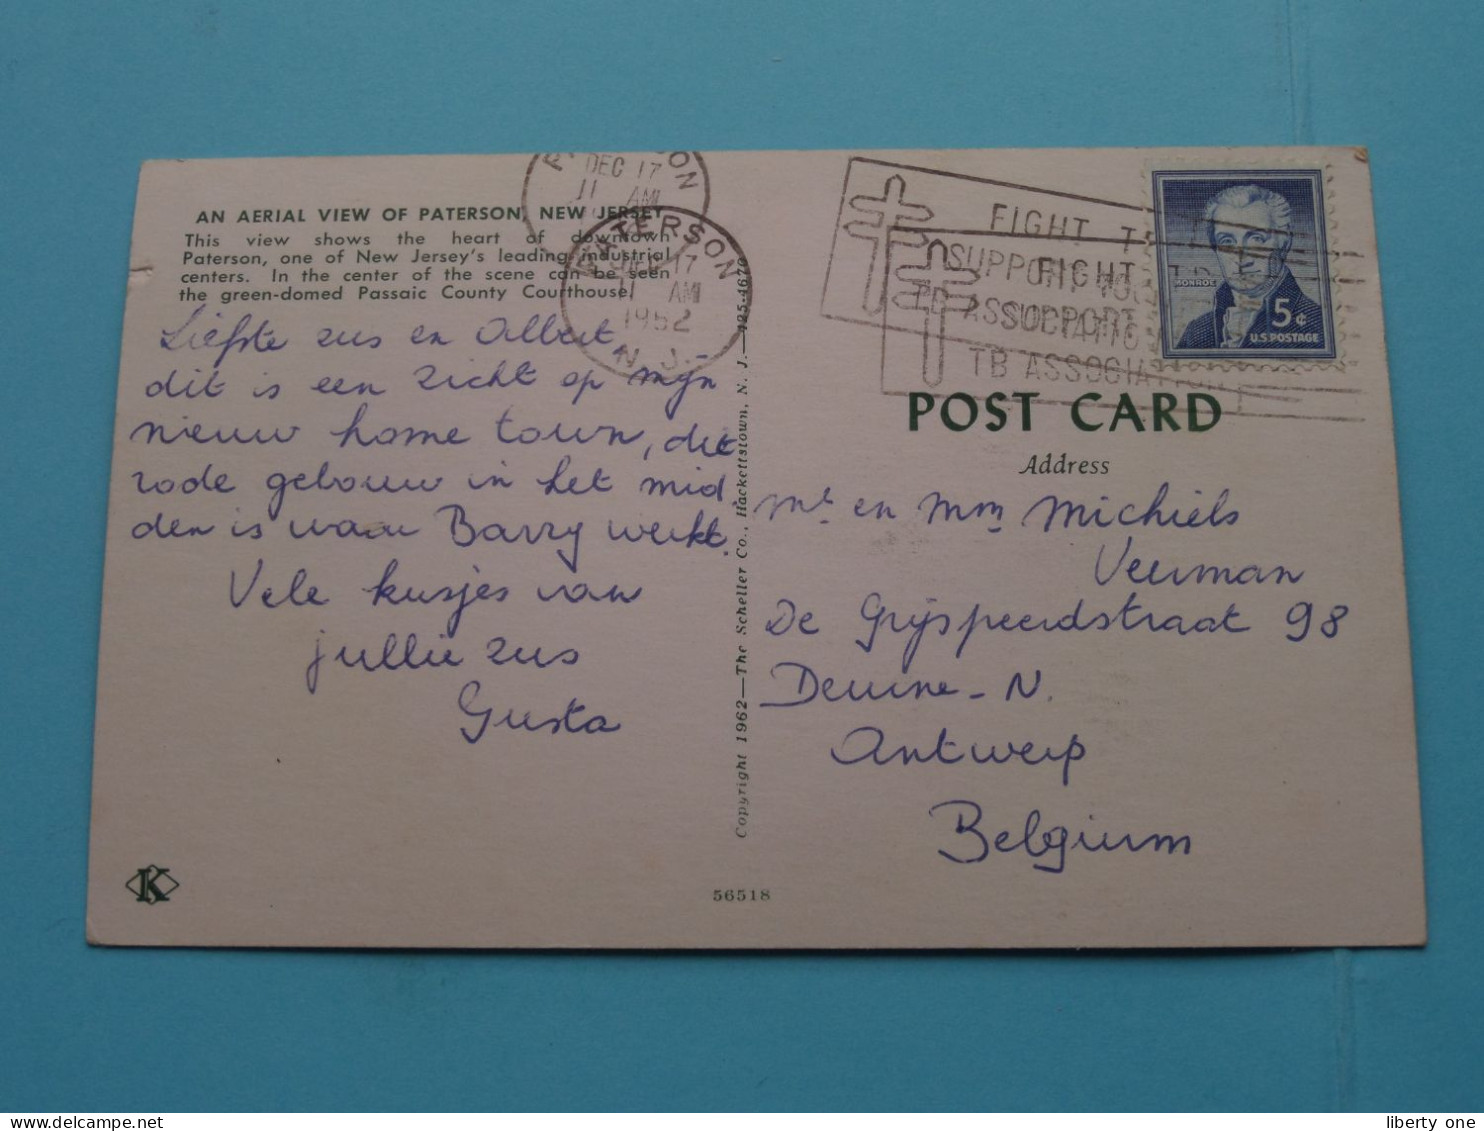 AN AERIAL VIEW OF PATERSON, NEW JERSEY
This view shows the heart of downtown
Paterson, one of New Jersey's leading industrial
centers. In the center of the scene can be seen
the green-domed Passaic County Courthouse.
Liefste zus en Albert
dit is een zicht op mijn
nieuw home town, dit
rode gebouw in het mid.
den is waar Barry werkt.
Vele kusjes van
jullie zus
Gusta
K
DEC 17
11 AM
PATERSON
DEC 17
11 AM
1962
N. J.
FIGHT TB
SUPPORT YOUR
TB ASSOCIATION
FIGHT TB
SUPPORT
TB ASSOCIATION
MONROE
5¢
U.S. POSTAGE
POST CARD
Address
Mr en Mm Michiels
Veerman
De Grijspeerdstraat 98
Deurne-N.
Antwerp
Belgium
Copyright 1962—The Scheller Co., Hackettstown, N. J.—425-4670
56518
liberty one